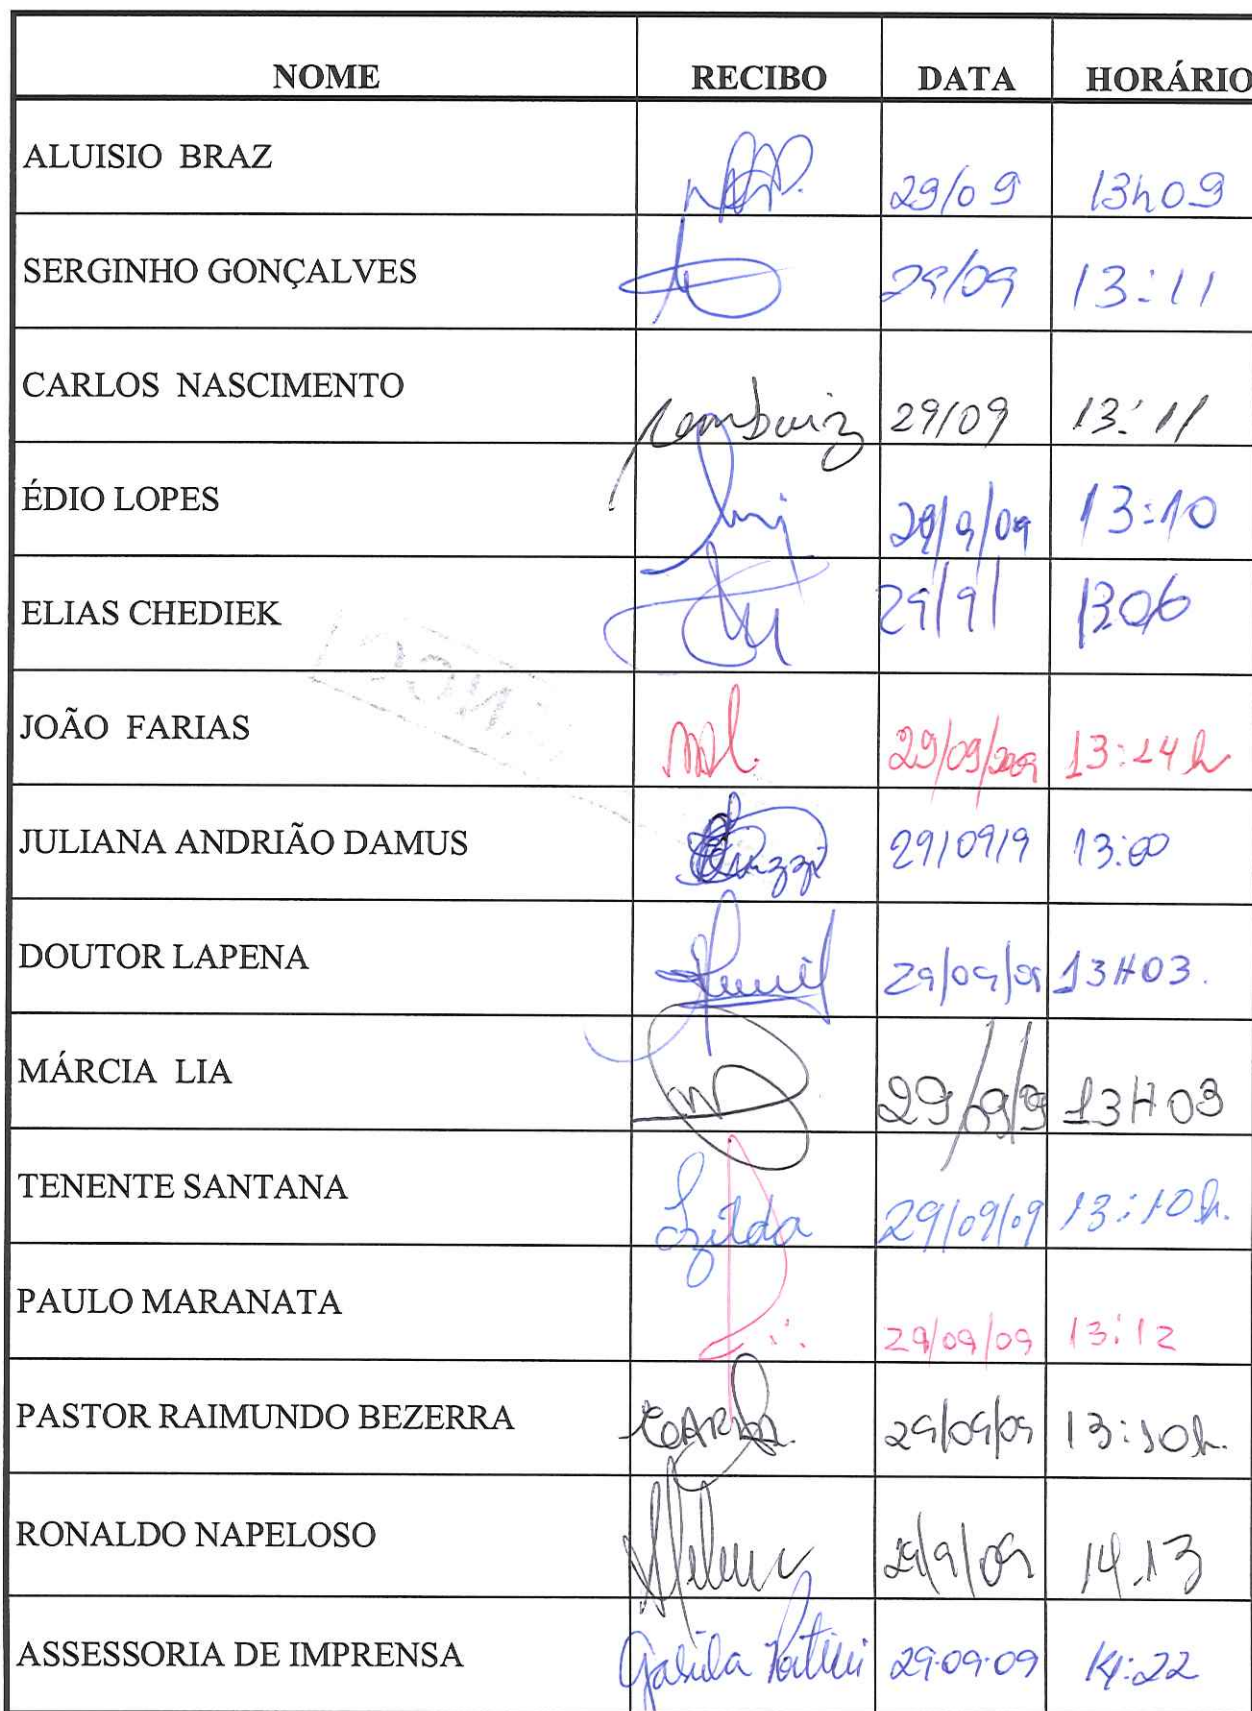 NOME RECIBO DATA HORÁRIO
ALUISIO BRAZ 29/09 13h09
SERGINHO GONÇALVES 29/09 13:11
CARLOS NASCIMENTO 29/09 13:11
ÉDIO LOPES 29/9/09 13:10
ELIAS CHEDIEK 29/9/ 1306
JOÃO FARIAS 29/09/2009 13:24h
JULIANA ANDRIÃO DAMUS 29/09/9 13:00
DOUTOR LAPENA 29/09/09 13H03.
MÁRCIA LIA 29/09/09 13H03
TENENTE SANTANA Izilda 29/09/09 13:10h.
PAULO MARANATA 29/09/09 13:12
PASTOR RAIMUNDO BEZERRA 29/09/09 13:10h.
RONALDO NAPELOSO 29/9/09 14.13
ASSESSORIA DE IMPRENSA 29.09.09 14:22